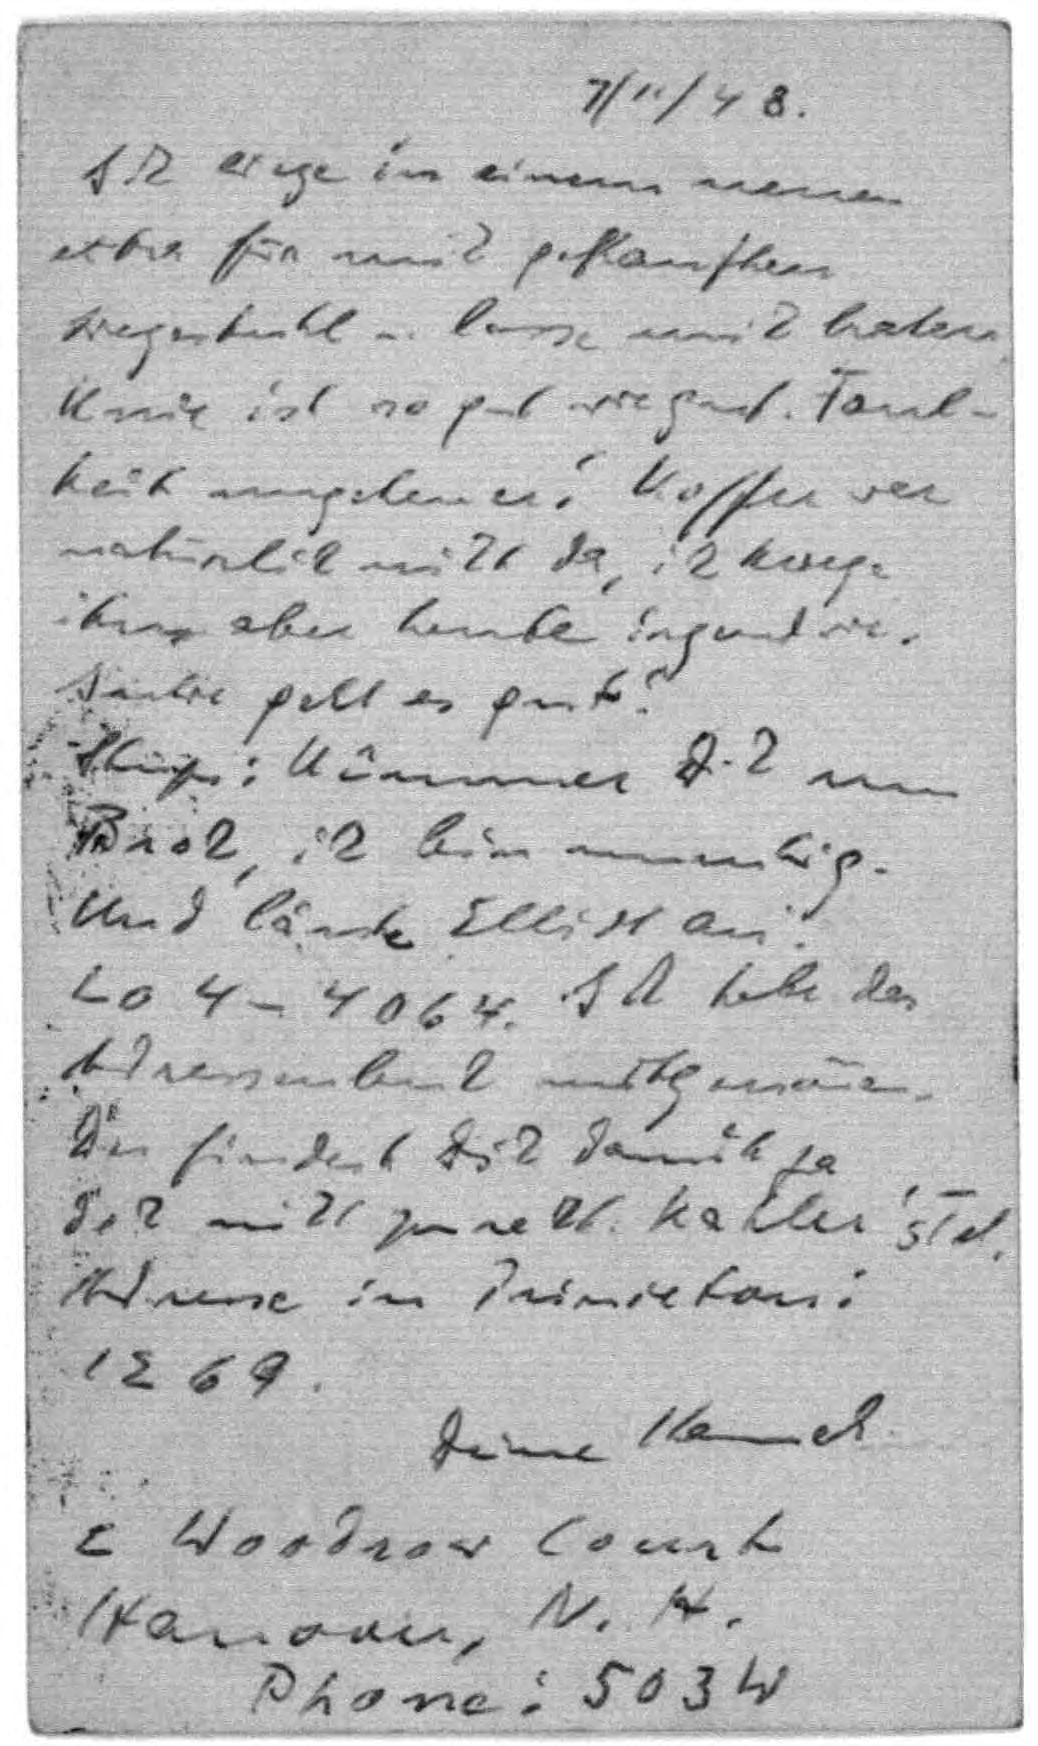 7/11/48.
Ich liege in einem neuen
extra für mich gekauften
Liegestuhl u. lasse mich braten.
Knie ist so gut wie gut. Faul-
heit ungeheuer! Koffer war
natürlich nicht da, ich kriege
ihn aber heute irgendwie.
geht es gut?
: Kümmer Dich um
Broch, ich bin unruhig.
Und läute Elliott an!
Lo 4-4064. Ich habe das
Adressenbuch mitgenommen.
Du findest Dich damit ja
doch nicht zurecht. Kahler's Tel.
Adresse in Princeton:
1269.
Deine Hannah
2 Woodrow Court
Hanover, N. H.
Phone: 503W